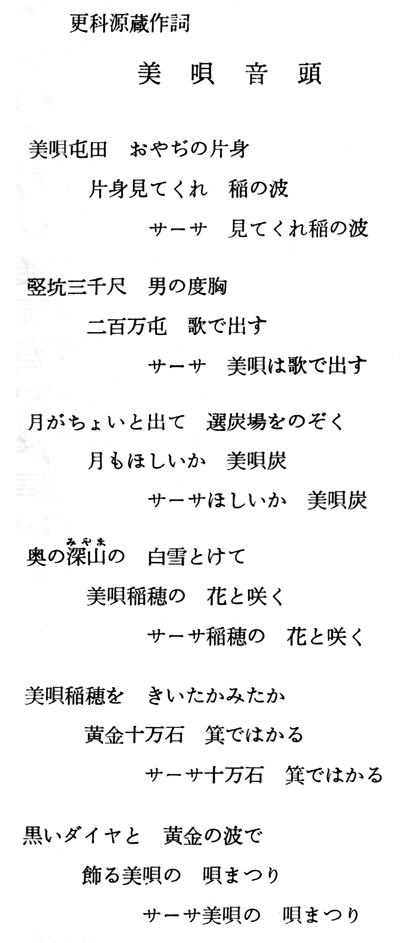 更科源蔵作詞
美唄音頭
美唄屯田　おやぢの片身
片身見てくれ　稲の波
サーサ　見てくれ稲の波
竪坑三千尺　男の度胸
二百万屯　歌で出す
サーサ　美唄は歌で出す
月がちょいと出て　選炭場をのぞく
月もほしいか　美唄炭
サーサほしいか　美唄炭
奥の深山の　白雪とけて
みやま
美唄稲穂の　花と咲く
サーサ稲穂の　花と咲く
美唄稲穂を　きいたかみたか
黄金十万石　箕ではかる
サーサ十万石　箕ではかる
黒いダイヤと　黄金の波で
飾る美唄の　唄まつり
サーサ美唄の　唄まつり